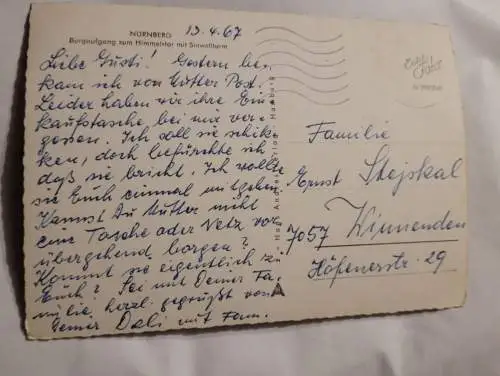 NÜRNBERG
13.4.67
Burgaufgang zum Himmelstor mit Sinwellturm
Liebe Gusti! Gestern be-
kam ich von Mutter Post.
Leider haben wir ihre Ein-
kaufstasche bei mir ver-
gessen. Ich soll sie schik-
ken, doch befürchte ich
daß sie bricht. Ich wollte
sie Euch einmal mitgeben.
Kannst Du Mutter nicht
eine Tasche oder Netz vor-
übergehend borgen?
Kommt sie eigentlich zu
Euch? Sei mit Deiner Fa-
milie, herzl. gegrüßt von
Deiner Deli mit Fam.
Hamburg
Familie
Ernst Stejskal
7057 Winnenden
Höfenerstr. 29